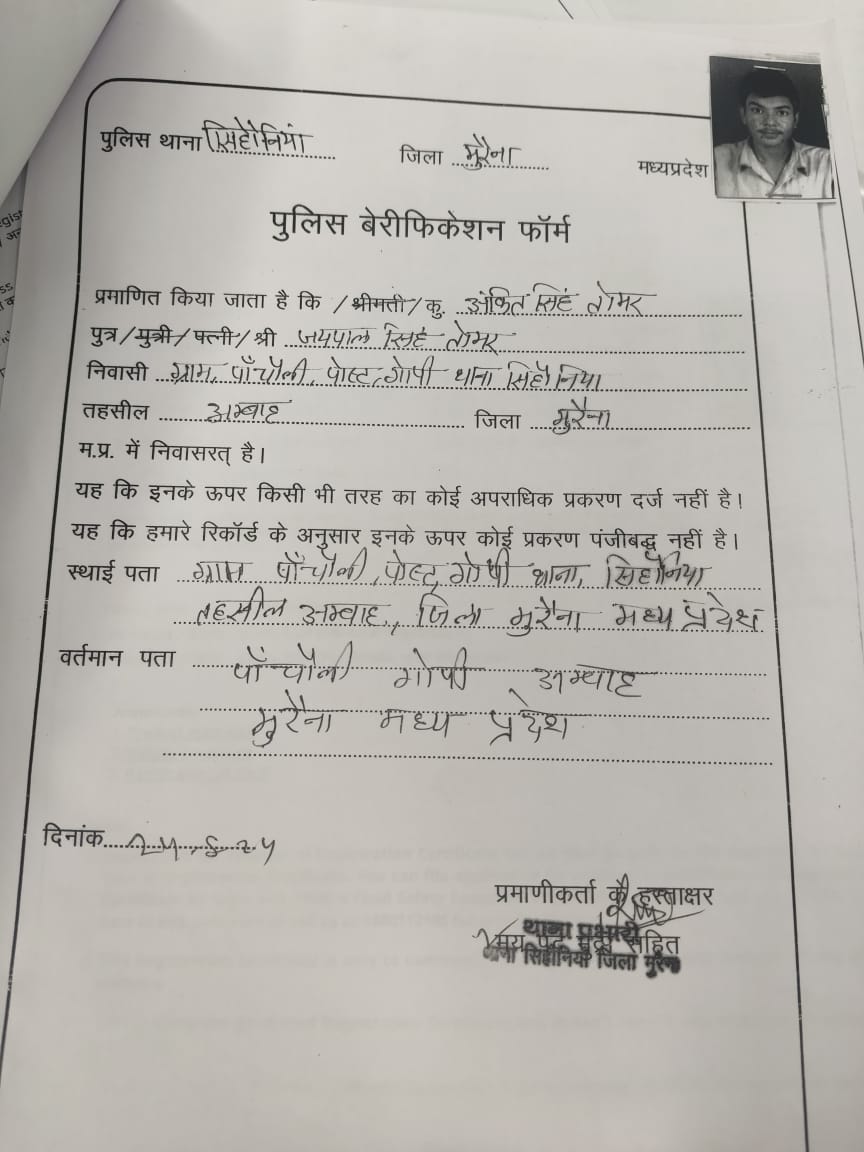 पुलिस थाना सिहोनियां जिला मुरैना मध्यप्रदेश
पुलिस बेरीफिकेशन फॉर्म
प्रमाणित किया जाता है कि /श्रीमती/ कु. अंकित सिहं तोमर
पुत्र/पुत्री/पत्नी/श्री जयपाल सिहं तोमर
निवासी ग्राम, पाँचौली, पोस्ट, गोपी थाना सिहौनिया
तहसील अम्बाह जिला मुरैना
म.प्र. में निवासरत् है।
यह कि इनके ऊपर किसी भी तरह का कोई अपराधिक प्रकरण दर्ज नहीं है।
यह कि हमारे रिकॉर्ड के अनुसार इनके ऊपर कोई प्रकरण पंजीबद्ध नहीं है।
स्थाई पता ग्राम पाँचौली, पोस्ट, गोपी थाना, सिहौनिया
तहसील अम्बाह, जिला मुरैना मध्य प्रदेश
वर्तमान पता पाँचौली गोपी अम्बाह
मुरैना मध्य प्रदेश
दिनांक
प्रमाणीकर्ता के हस्ताक्षर
थाना प्रभारी
मय पद मुद्रा सहित
थाना सिहौनिया जिला मुरैना